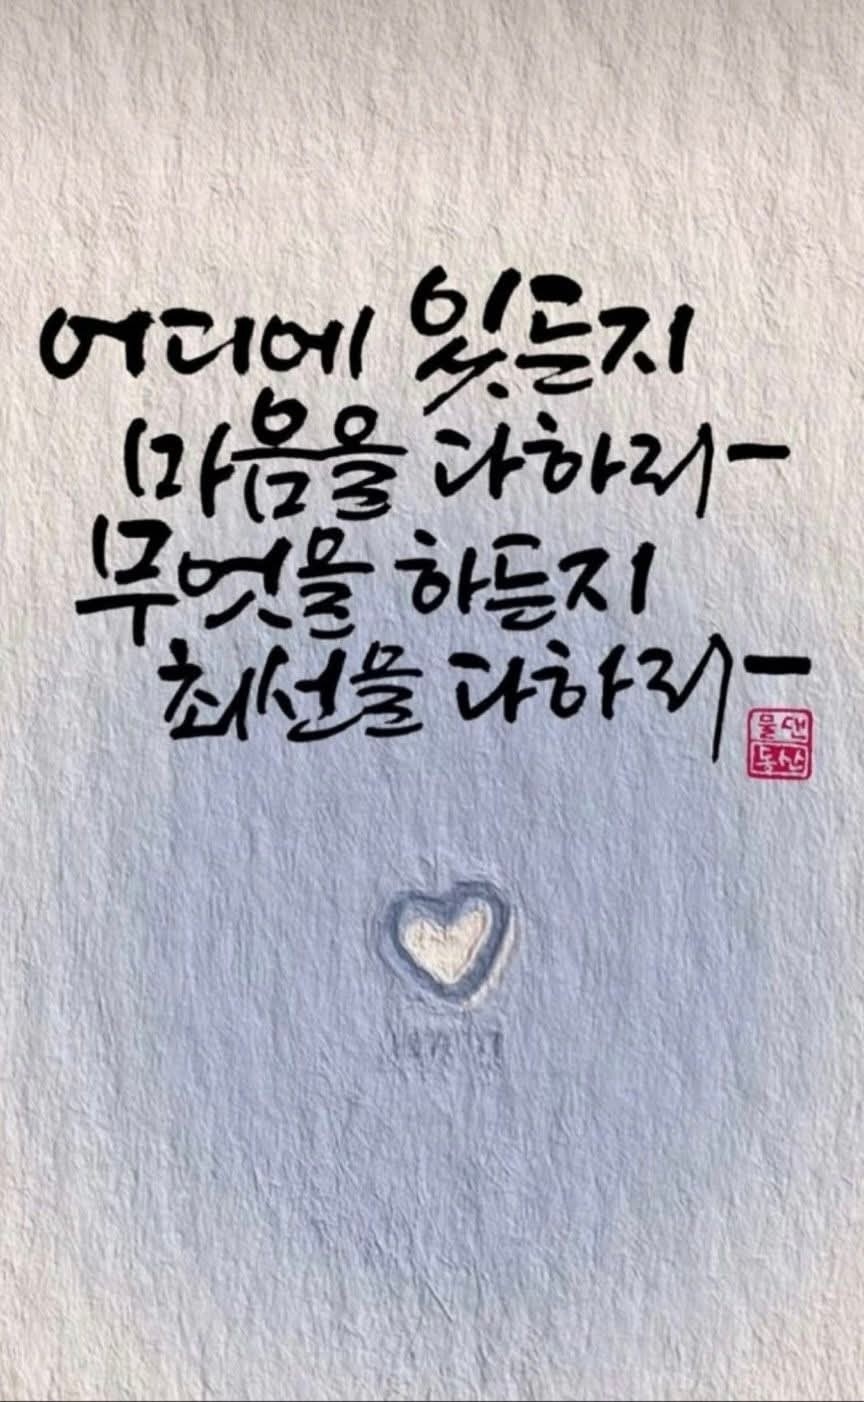 어디에 있든지
마음을 다하리-
무엇을 하든지
최선을 다하리-
물댄
동산